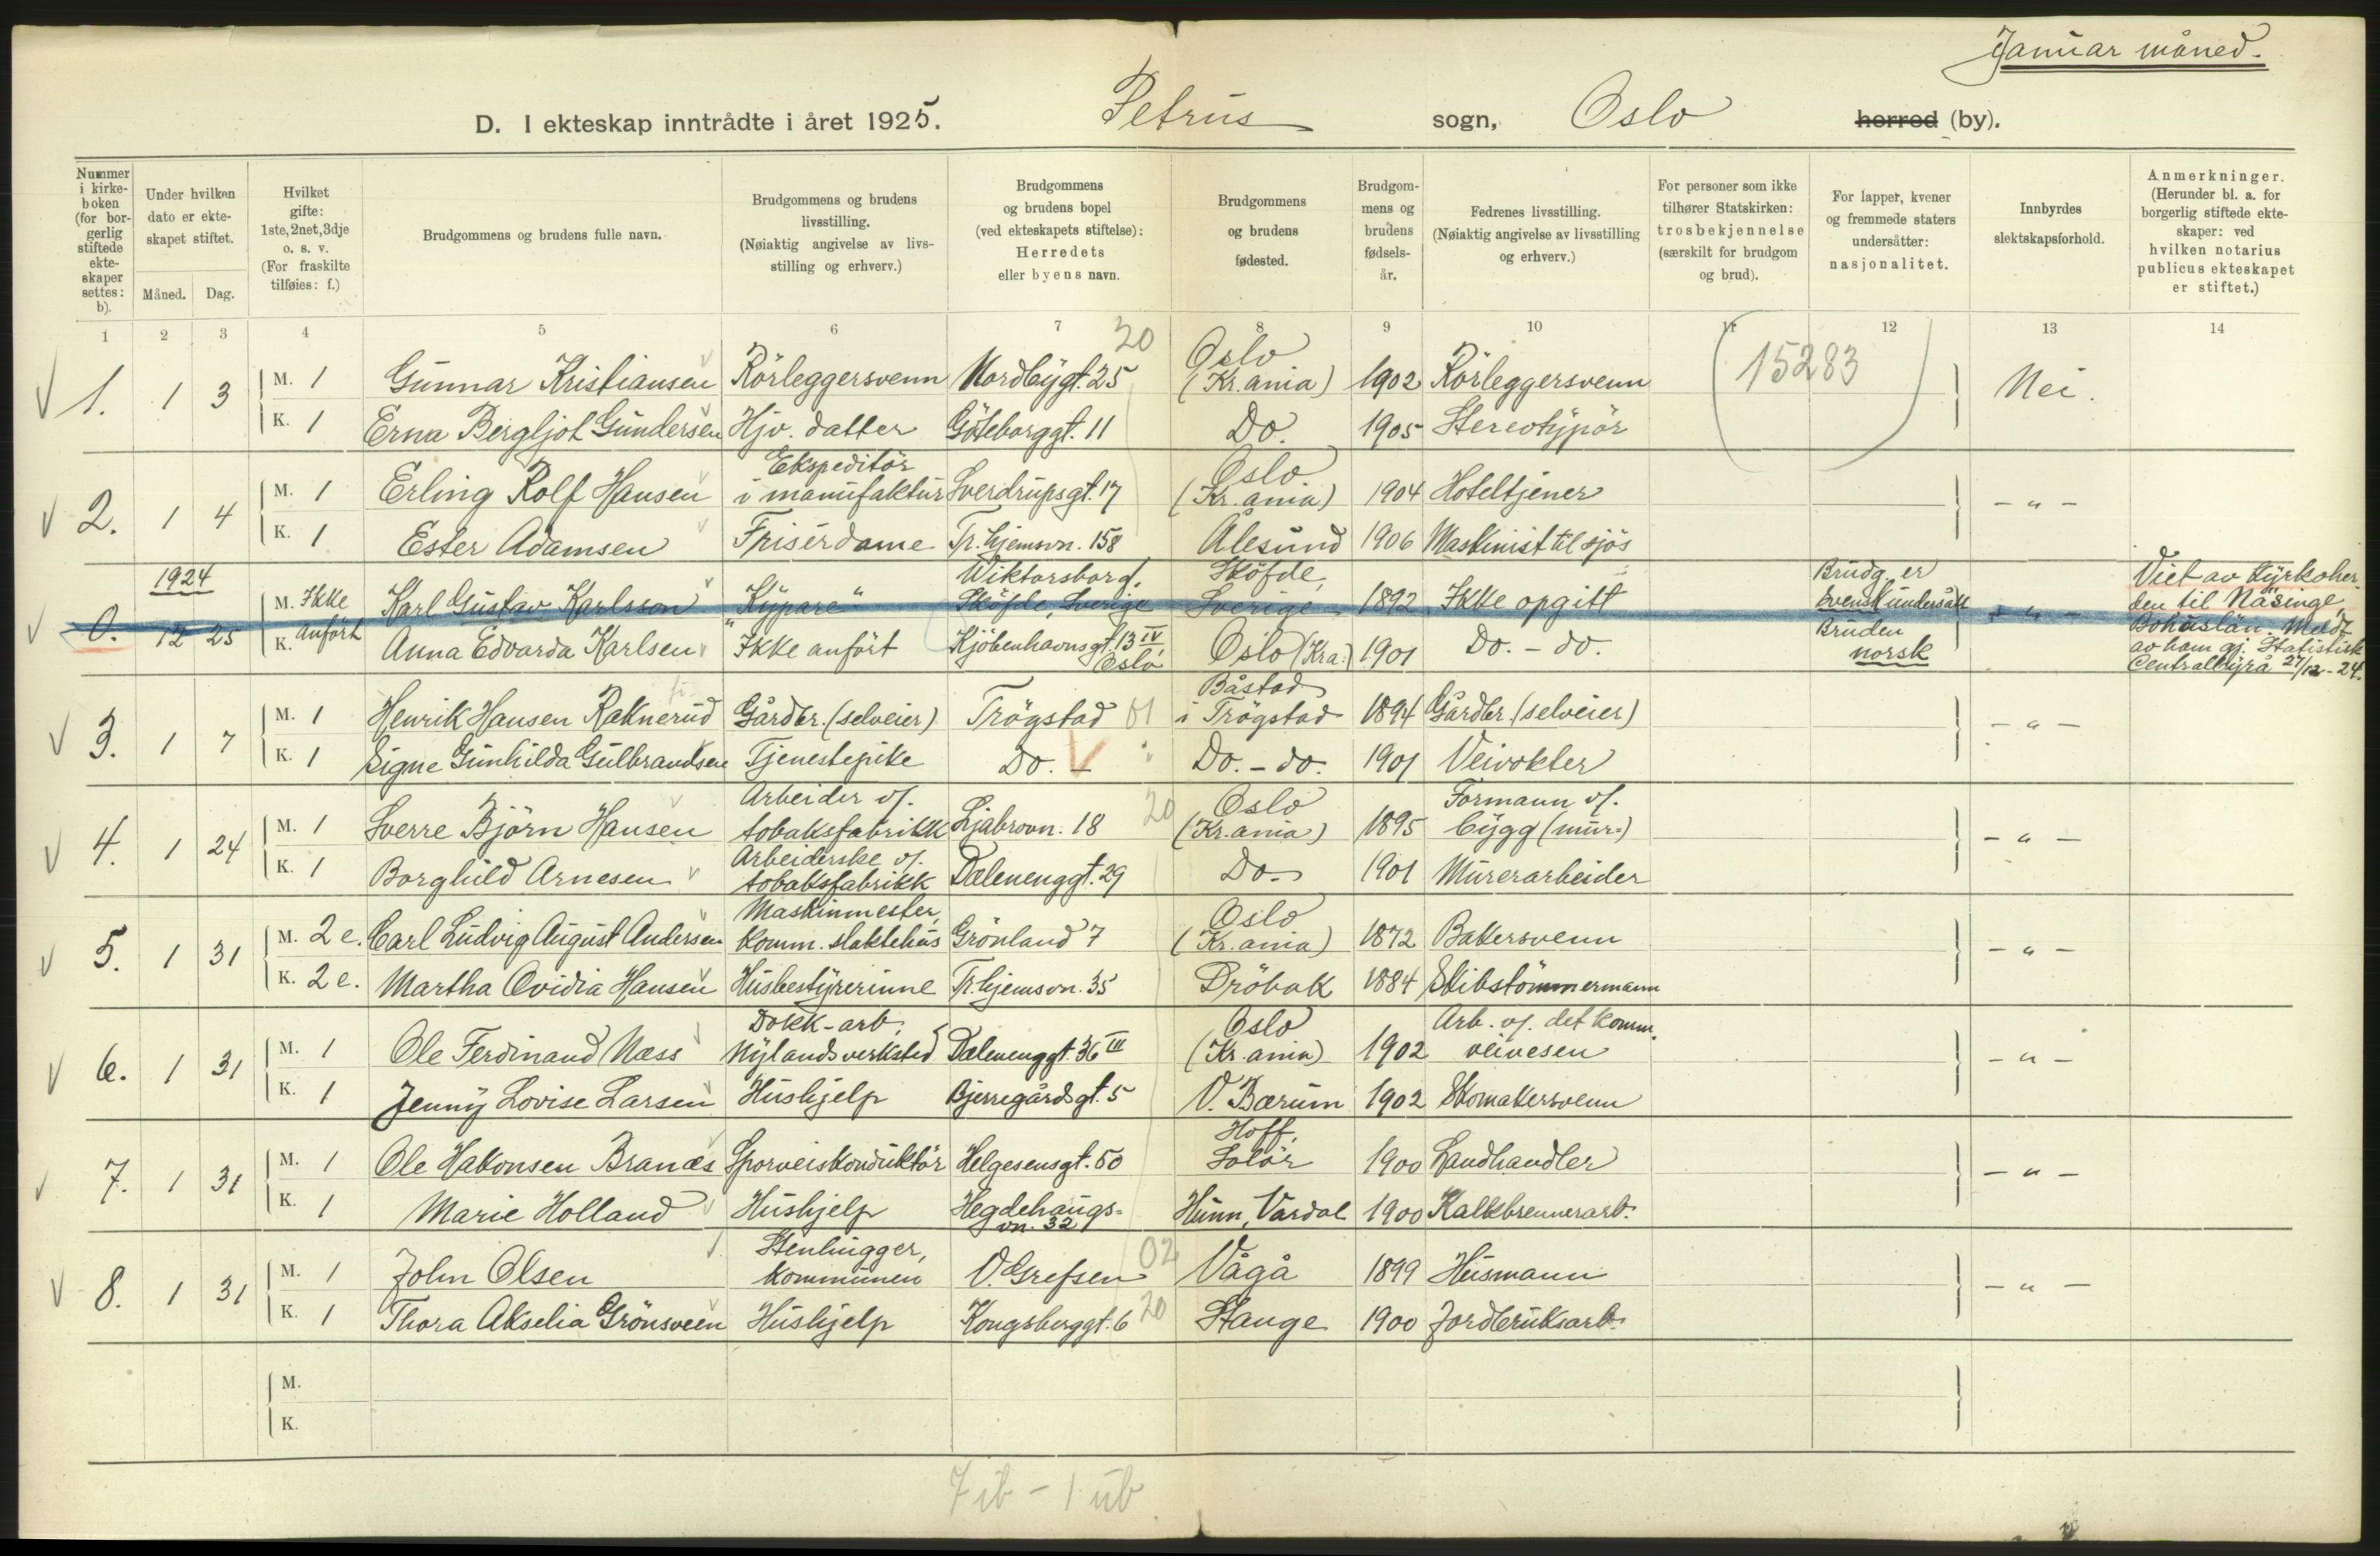 Januar måned.
D. I ekteskap inntrådte i året 1925. Petrus sogn, Oslo herred (by).
Nummer i kirke-boken (for bor-gerlig stiftede ekte-skaper settes: b).
Under hvilken dato er ekte-skapet stiftet.
Måned. Dag.
Hvilket gifte: 1ste, 2net, 3dje o. s. v. (For fraskilte tilføies: f.)
Brudgommens og brudens fulle navn.
Brudgommens og brudens livsstilling. (Nøiaktig angivelse av livs-stilling og erhverv.)
Brudgommens og brudens bopel (ved ekteskapets stiftelse): Herredets eller byens navn.
Brudgommens og brudens fødested.
Brudgom-mens og brudens fødsels-år.
Fedrenes livsstilling. (Nøiaktig angivelse av livsstilling og erhverv.)
For personer som ikke tilhører Statskirken: trosbekjennelse (særskilt for brudgom og brud).
For lapper, kvener og fremmede staters undersåtter: nasjonalitet.
Innbyrdes slektskapsforhold.
Anmerkninger. (Herunder bl. a. for borgerlig stiftede ekte-skaper: ved hvilken notarius publicus ekteskapet er stiftet.)
1 2 3 4 5 6 7 8 9 10 11 12 13 14
20
1. 1 3 M. 1 Gunnar Kristiansen Rörleggersvenn Nordbygt. 25 Oslo (Kr.ania) 1902 Rörleggersvenn (15283) Nei.
K. 1 Erna Bergljot Gundersen Hjv. datter Göteborggt. 11 Do. 1905 Stereotypör
2. 1 4 M. 1 Erling Rolf Hansen Ekspeditör i manufaktur Sverdrupsgt. 17 Oslo (Kr.ania) 1904 Hoteltjener - " -
K. 1 Ester Adamsen Frisérdame Tr.hjemsvn. 158 Ålesund 1906 Maskinist til sjös
1924
0. 12 25 M. Ikke Karl Gustav Karlsson "Kypare" Wiktorsbord. Sköfde, Sverige Sköfde, Sverige 1892 Ikke opgitt Brudg. er svensk undersått - " - Viet av kyrkoher-
K. anfört Anna Edvarda Karlsen Ikke anfört Kjöbenhavnsgt. 13 IV, Oslo Oslo (Kra.) 1901 Do. - do. Bruden norsk
den til Näsinge,
Bohuslän. Meldt
av ham gj. Statistisk
Centralbyrå 27/12-24.
3. 1 7 M. 1 Henrik Hansen Raknerud Gårdbr. (selveier) Trögstad 01 Båstad i Trögstad 1894 Gårdbr. (selveier) - " -
K. 1 Signe Gunhilda Gulbrandsen Tjenestepike Do. - " Do. - do. 1901 Veivokter
4. 1 24 M. 1 Sverre Björn Hansen Arbeider v/. tobaksfabrikk Ljabrovn. 18 20 Oslo (Kr.ania) 1895 Formann v/. bygg (mur-) - " -
K. 1 Borghild Arnesen Arbeiderske v/. tobaksfabrikk Dælenenggt. 29 Do. 1901 Murerarbeider
5. 1 31 M. 2 e. Carl Ludvig August Andersen Maskinmester, komm. slaktehus Grönland 7 Oslo (Kr.ania) 1872 Bakersvenn - " -
K. 2 e. Martha Ovidia Hansen Husbestyrerinne Tr.hjemsvn. 35 Dröbak 1884 Skibstömmermann
6. 1 31 M. 1 Ole Ferdinand Næss Dokk-arb. Nylandsverksted Dælenenggt. 36 III Oslo (Kr.ania) 1902 Arb. v/. det komm. veivesen - " -
K. 1 Jenny Lovise Larsen Hushjelp Bjerregårdsgt. 5 V. Bærum 1902 Skomakersvenn
7. 1 31 M. 1 Ole Hakonsen Branæs Sporveiskonduktör Helgesensgt. 50 Hoff, Solör 1900 Landhandler - " -
K. 1 Marie Holland Hushjelp Hegdehaugs-vn. 32 Hunn, Vardal 1900 Kalkbrennerarb.
8. 1 31 M. 1 John Olsen Stenhugger, kommunen V. Grefsen 02 Vågå 1899 Husmann - " -
K. 1 Thora Akselia Grönsveen Hushjelp Kongsberggt. 6 20 Stange 1900 Jordbruksarb.
M.
K.
7 ib - 1 ub